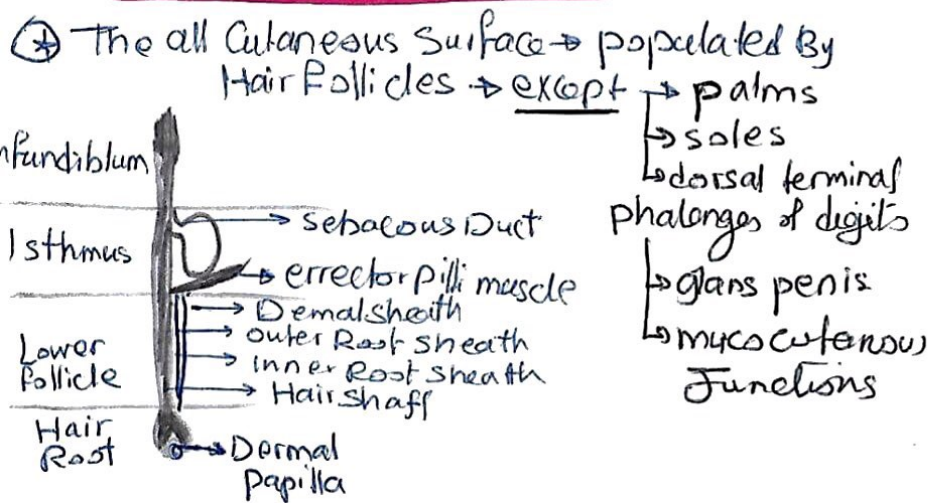 The all Cutaneous Surface → populated By
Hair Follicles → except → palms
→ soles
→ dorsal terminal
phalanges of digits
→ glans penis
→ mucocutenous
Junctions
nfundiblum
Isthmus
Lower
follicle
Hair
Root
→ Sebaceous Duct
→ errector pilli muscle
→ Demal Sheath
→ outer Root sheath
→ inner Root Sheath
→ Hair Shaff
→ Dermal
papilla